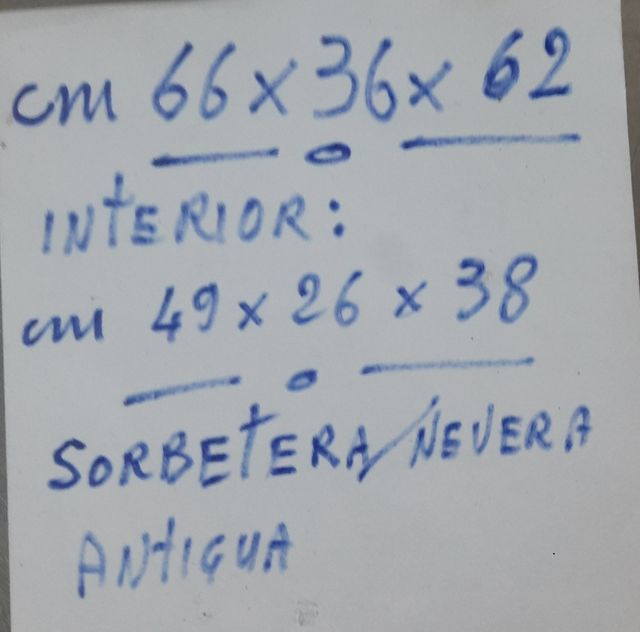 cm 66 x 36 x 62
INTERIOR:
cm 49 x 26 x 38
SORBETERA/NEVERA
ANTIGUA